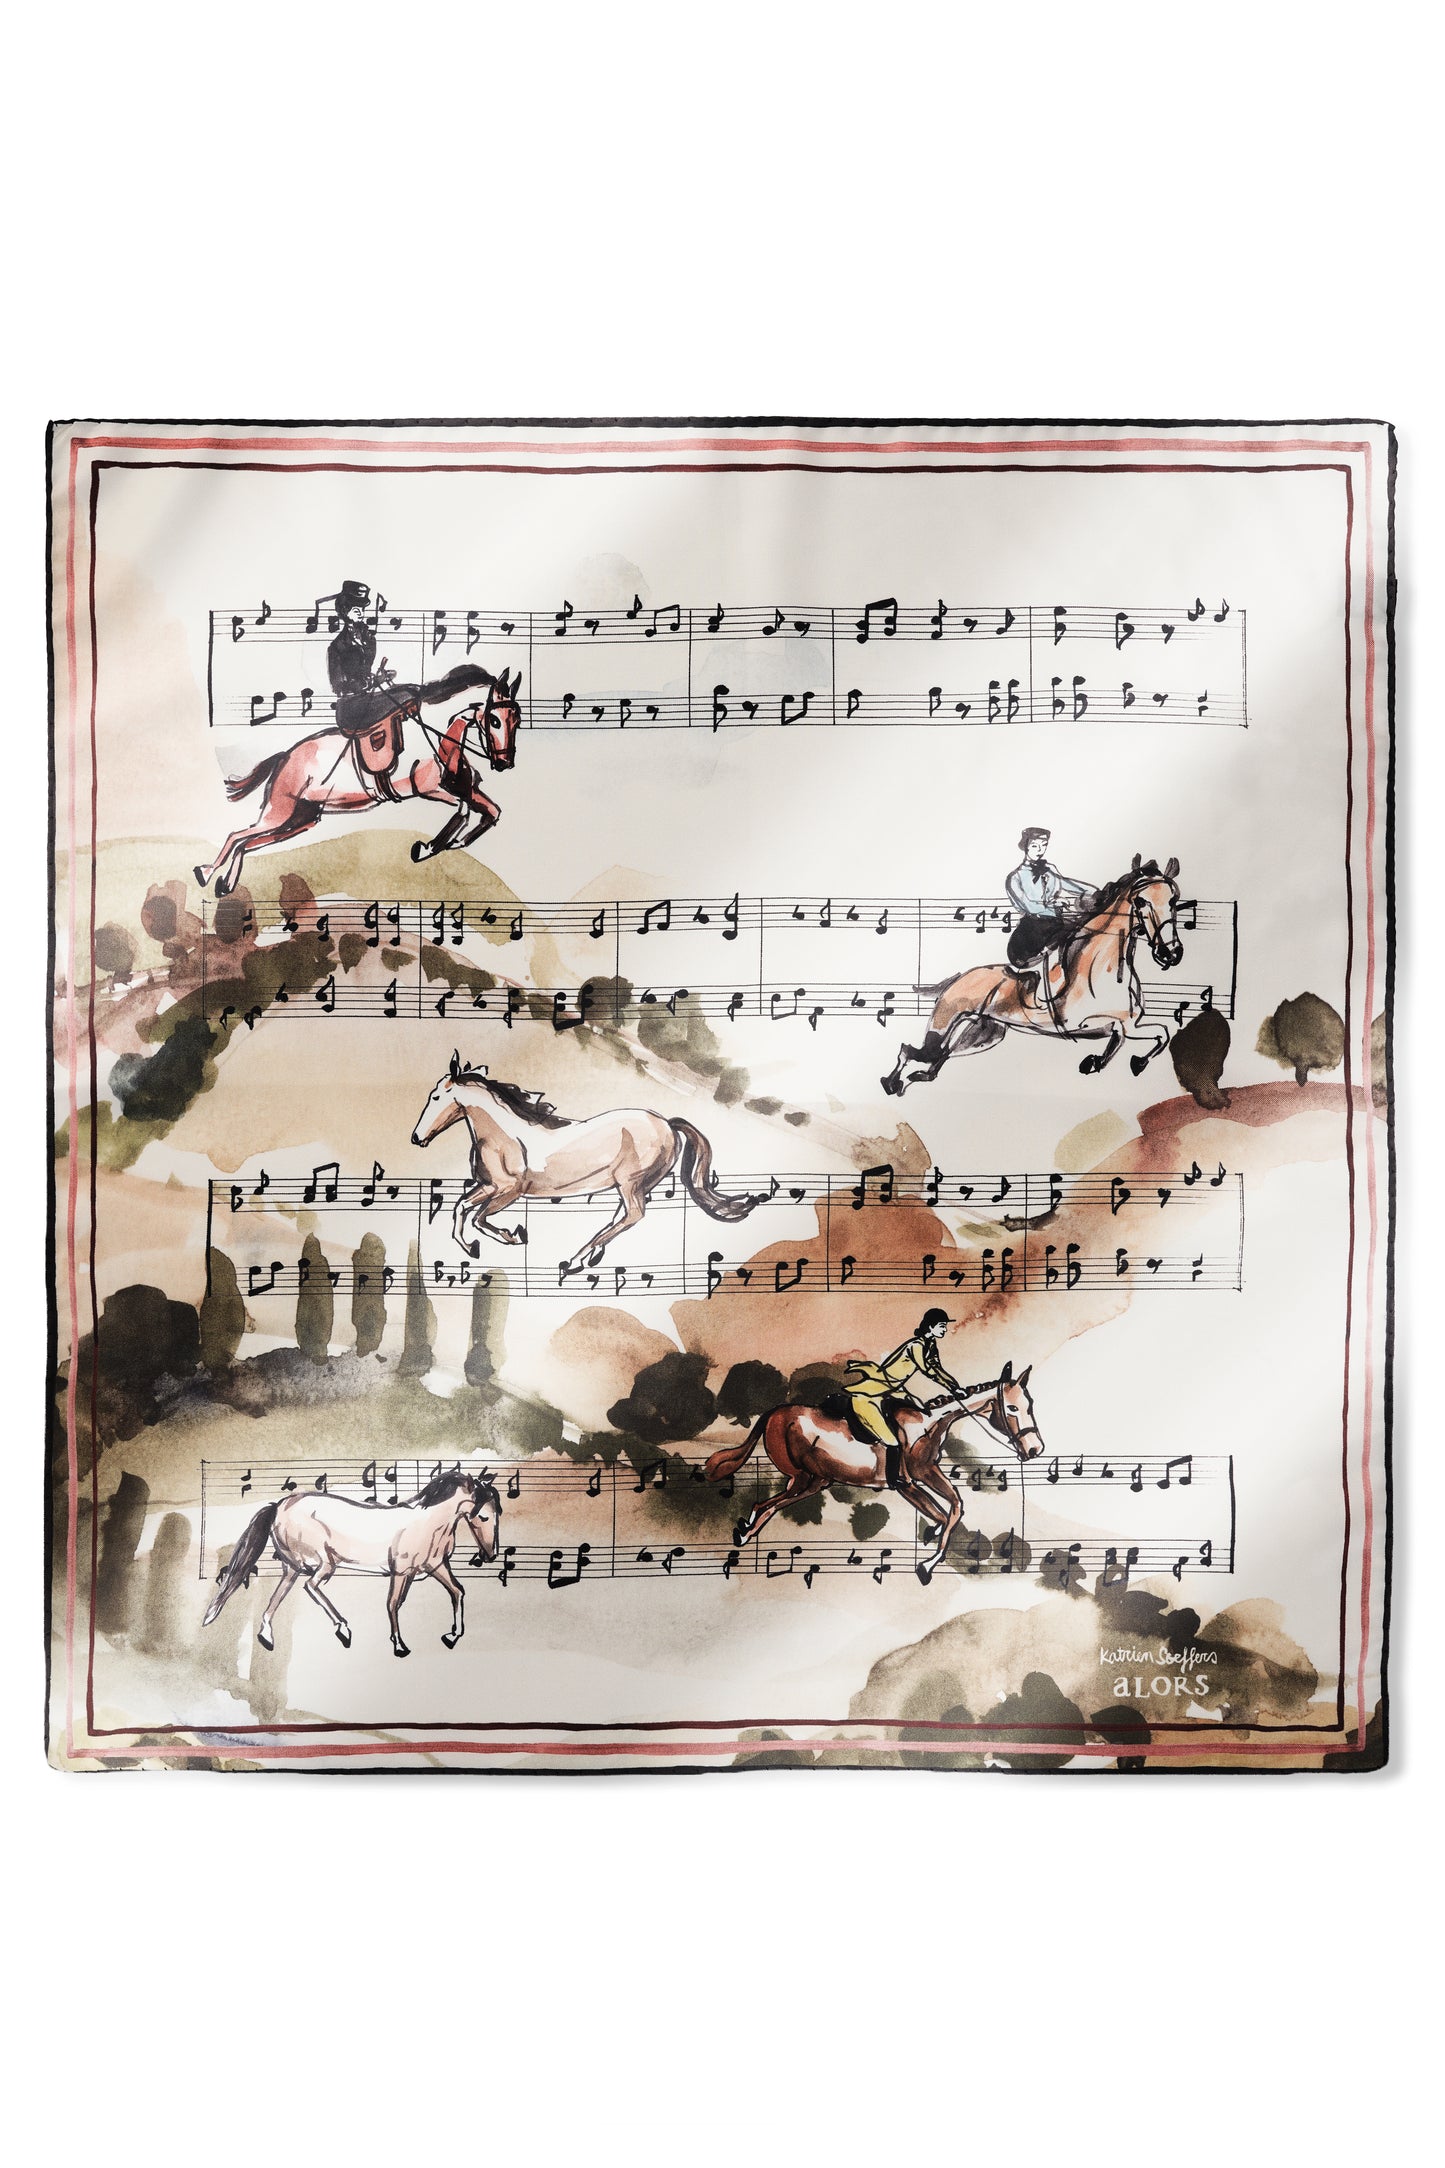 Katrien Soeffers
aLORS